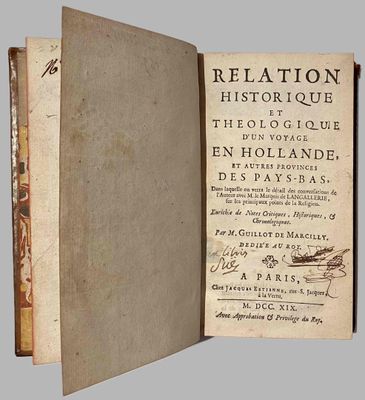 RELATION
HISTORIQUE
ET
THEOLOGIQUE
D'UN VOYAGE
EN HOLLANDE,
ET AUTRES PROVINCES
DES PAYS-BAS,
Dans laquelle on verra le détail des conversations de
l'Auteur avec M. le Marquis de LANGALLERIE,
sur les principaux points de la Religion.
Enrichie de Notes Critiques, Historiques, &
Chronologiques.
PAR M. GUILLOT DE MARCILLY,
DEDIÉE AU ROY.
ex libris
A PARIS,
Chez JACQUES ESTIENNE, rue S. Jacques
à la Vertu.
M. DCC. XIX.
Avec Approbation & Privilege du Roy.